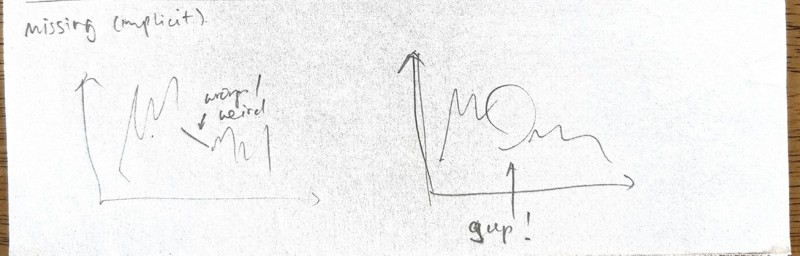 Missing (implicit)
wrong /
weird
gap!